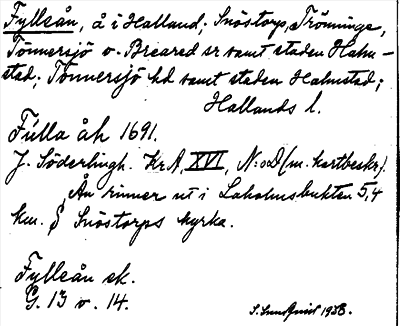 Fylleån, å i Halland; Snöstorps, Trönninge,
Tönnersjö o. Breared sn samt staden Halm-
stad; Tönnersjö hd samt staden Halmstad;
Hallands l.
Fulla åh 1691.
J. Söderlingh. Kr A, XVI, N:o (m. kartbeskr.).
Ån rinner ut i Laholmsbukten 5,4
km. S Snöstorps kyrka.
Fylleån ek.
G. 13 v. 14.
S. Lundquist 1938.